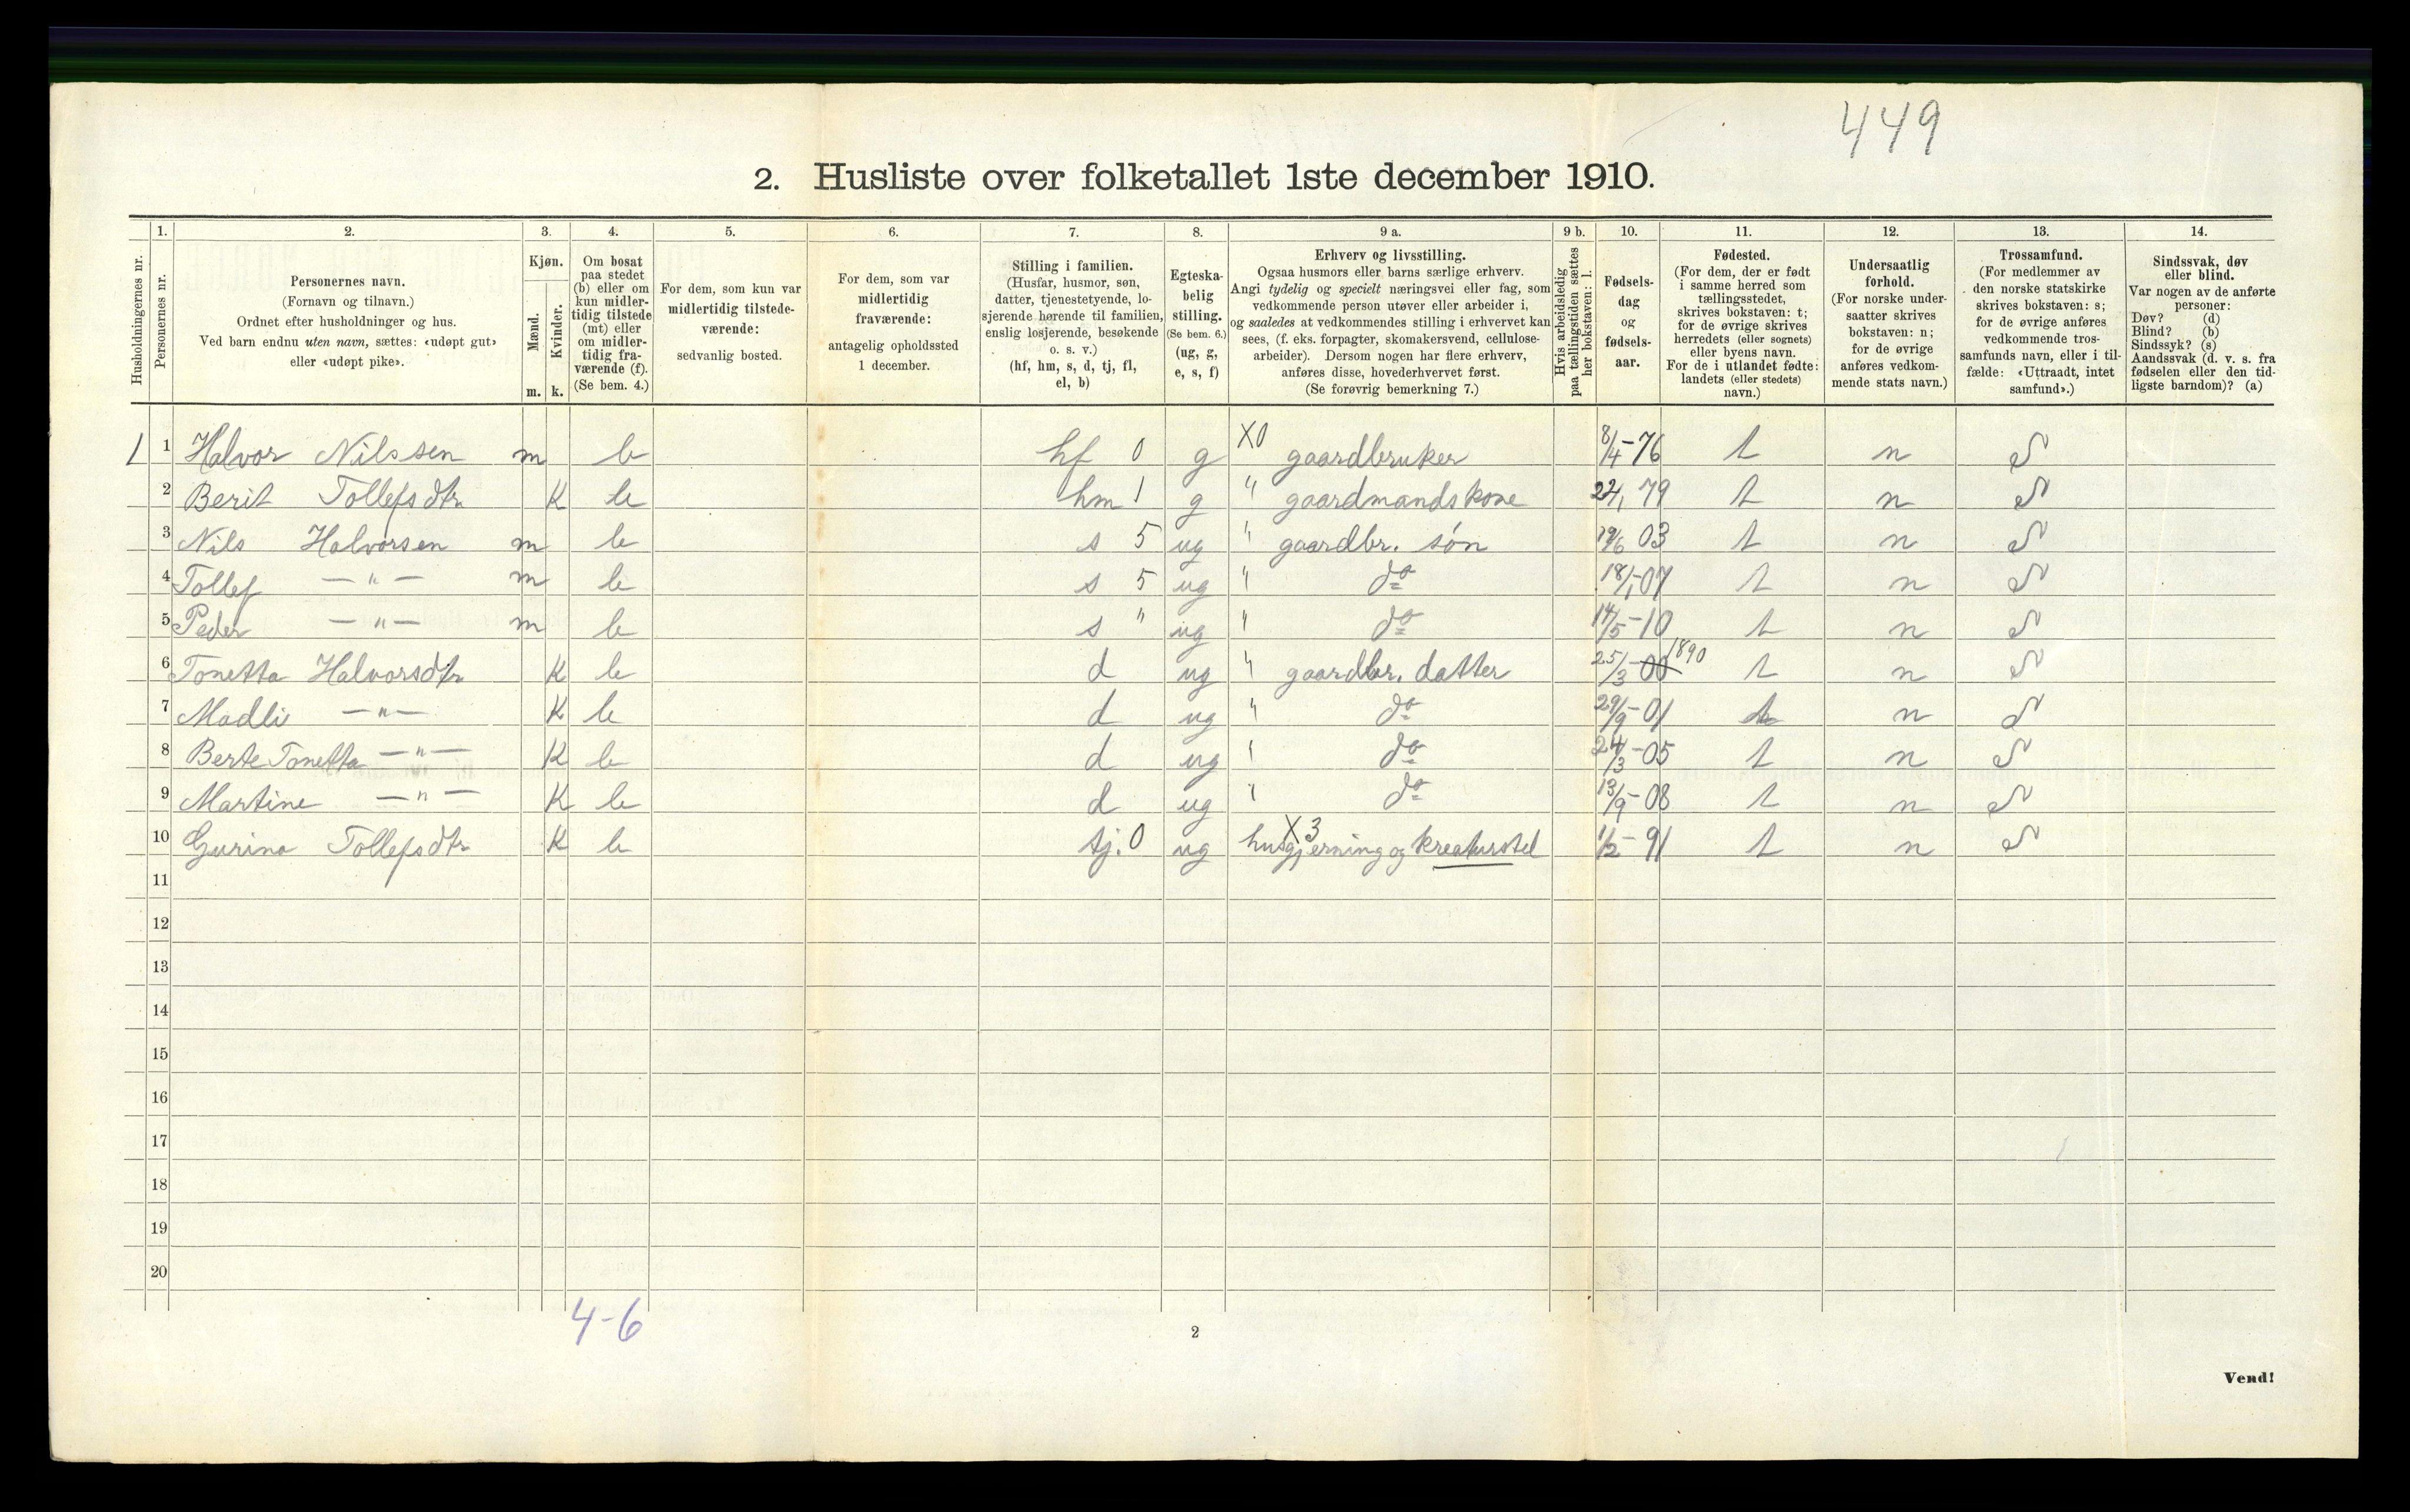 449
2. Husliste over folketallet 1ste december 1910.
Husholdningernes nr.
1. Personernes nr.
2. Personernes navn. (Fornavn og tilnavn.) Ordnet efter husholdninger og hus. Ved barn endnu uten navn, sættes: «udøpt gut» eller «udøpt pike».
3. Kjøn. Mænd. m. Kvinder. k.
4. Om bosat paa stedet (b) eller om kun midlertidig tilstede (mt) eller om midlertidig fraværende (f). (Se bem. 4.)
5. For dem, som kun var midlertidig tilstedeværende: sedvanlig bosted.
6. For dem, som var midlertidig fraværende: antagelig opholdssted 1 december.
7. Stilling i familien. (Husfar, husmor, søn, datter, tjenestetyende, losjerende hørende til familien, enslig losjerende, besøkende o. s. v.) (hf, hm, s, d, tj, fl, el, b)
8. Egteskabelig stilling. (Se bem. 6.) (ug, g, e, s, f)
9 a. Erhverv og livsstilling. Ogsaa husmors eller barns særlige erhverv. Angi tydelig og specielt næringsvei eller fag, som vedkommende person utøver eller arbeider i, og saaledes at vedkommendes stilling i erhvervet kan sees, (f. eks. forpagter, skomakersvend, cellulosearbeider). Dersom nogen har flere erhverv, anføres disse, hovederhvervet først. (Se forøvrig bemerkning 7.)
9 b. Hvis arbeidsledig paa tællingstiden sættes her bokstaven: l.
10. Fødselsdag og fødselsaar.
11. Fødested. (For dem, der er født i samme herred som tællingsstedet, skrives bokstaven: t; for de øvrige skrives herredets (eller sognets) eller byens navn. For de i utlandet fødte: landets (eller stedets) navn.)
12. Undersaatlig forhold. (For norske undersaatter skrives bokstaven: n; for de øvrige anføres vedkommende stats navn.)
13. Trossamfund. (For medlemmer av den norske statskirke skrives bokstaven: s; for de øvrige anføres vedkommende trossamfunds navn, eller i tilfælde: «Uttraadt, intet samfund».)
14. Sindssvak, døv eller blind. Var nogen av de anførte personer: Døv? (d) Blind? (b) Sindssyk? (s) Aandssvak (d. v. s. fra fødselen eller den tidligste barndom)? (a)
1 1 Halvor Nilssen m b hf 0 g X0 gaardbruker 8/4-76 t n S
2 Berit Tollefsdtr K b hm 1 g " gaardmandskone 79 t n S
3 Nils Halvorsen m b s 5 ug " gaardbr. søn 03 t n S
4 Tollef —"— m b s 5 ug " do 18/1-07 t n S
5 Peder —"— m b s " ug " do 14/5-10 t n S
6 Tonetta Halvorsdtr K b d ug " gaardbr. datter 25/3-00 1890 t n S
7 Madli —"— K b d ug " do 29/9-01 t n S
8 Berte Tonetta —"— K b d ug " do 24/3-05 t n S
9 Martine —"— K b d ug " do 13/9-08 t n S
10 Gurina Tollefsdtr K b tj. 0 ug X3 husgjerning og kreaturstel 1/2-91 t n S
11
12
13
14
15
16
17
18
19
20
4-6
2
Vend!